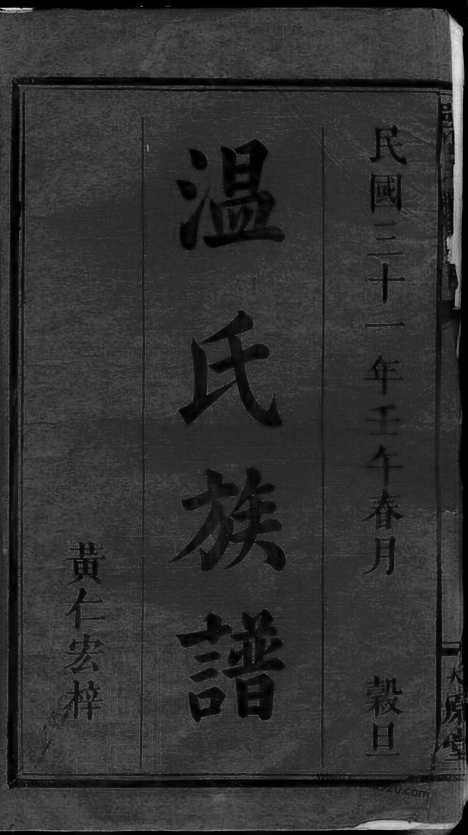 民國三十一年壬午春月 穀旦
温氏族譜
黃仁宏梓